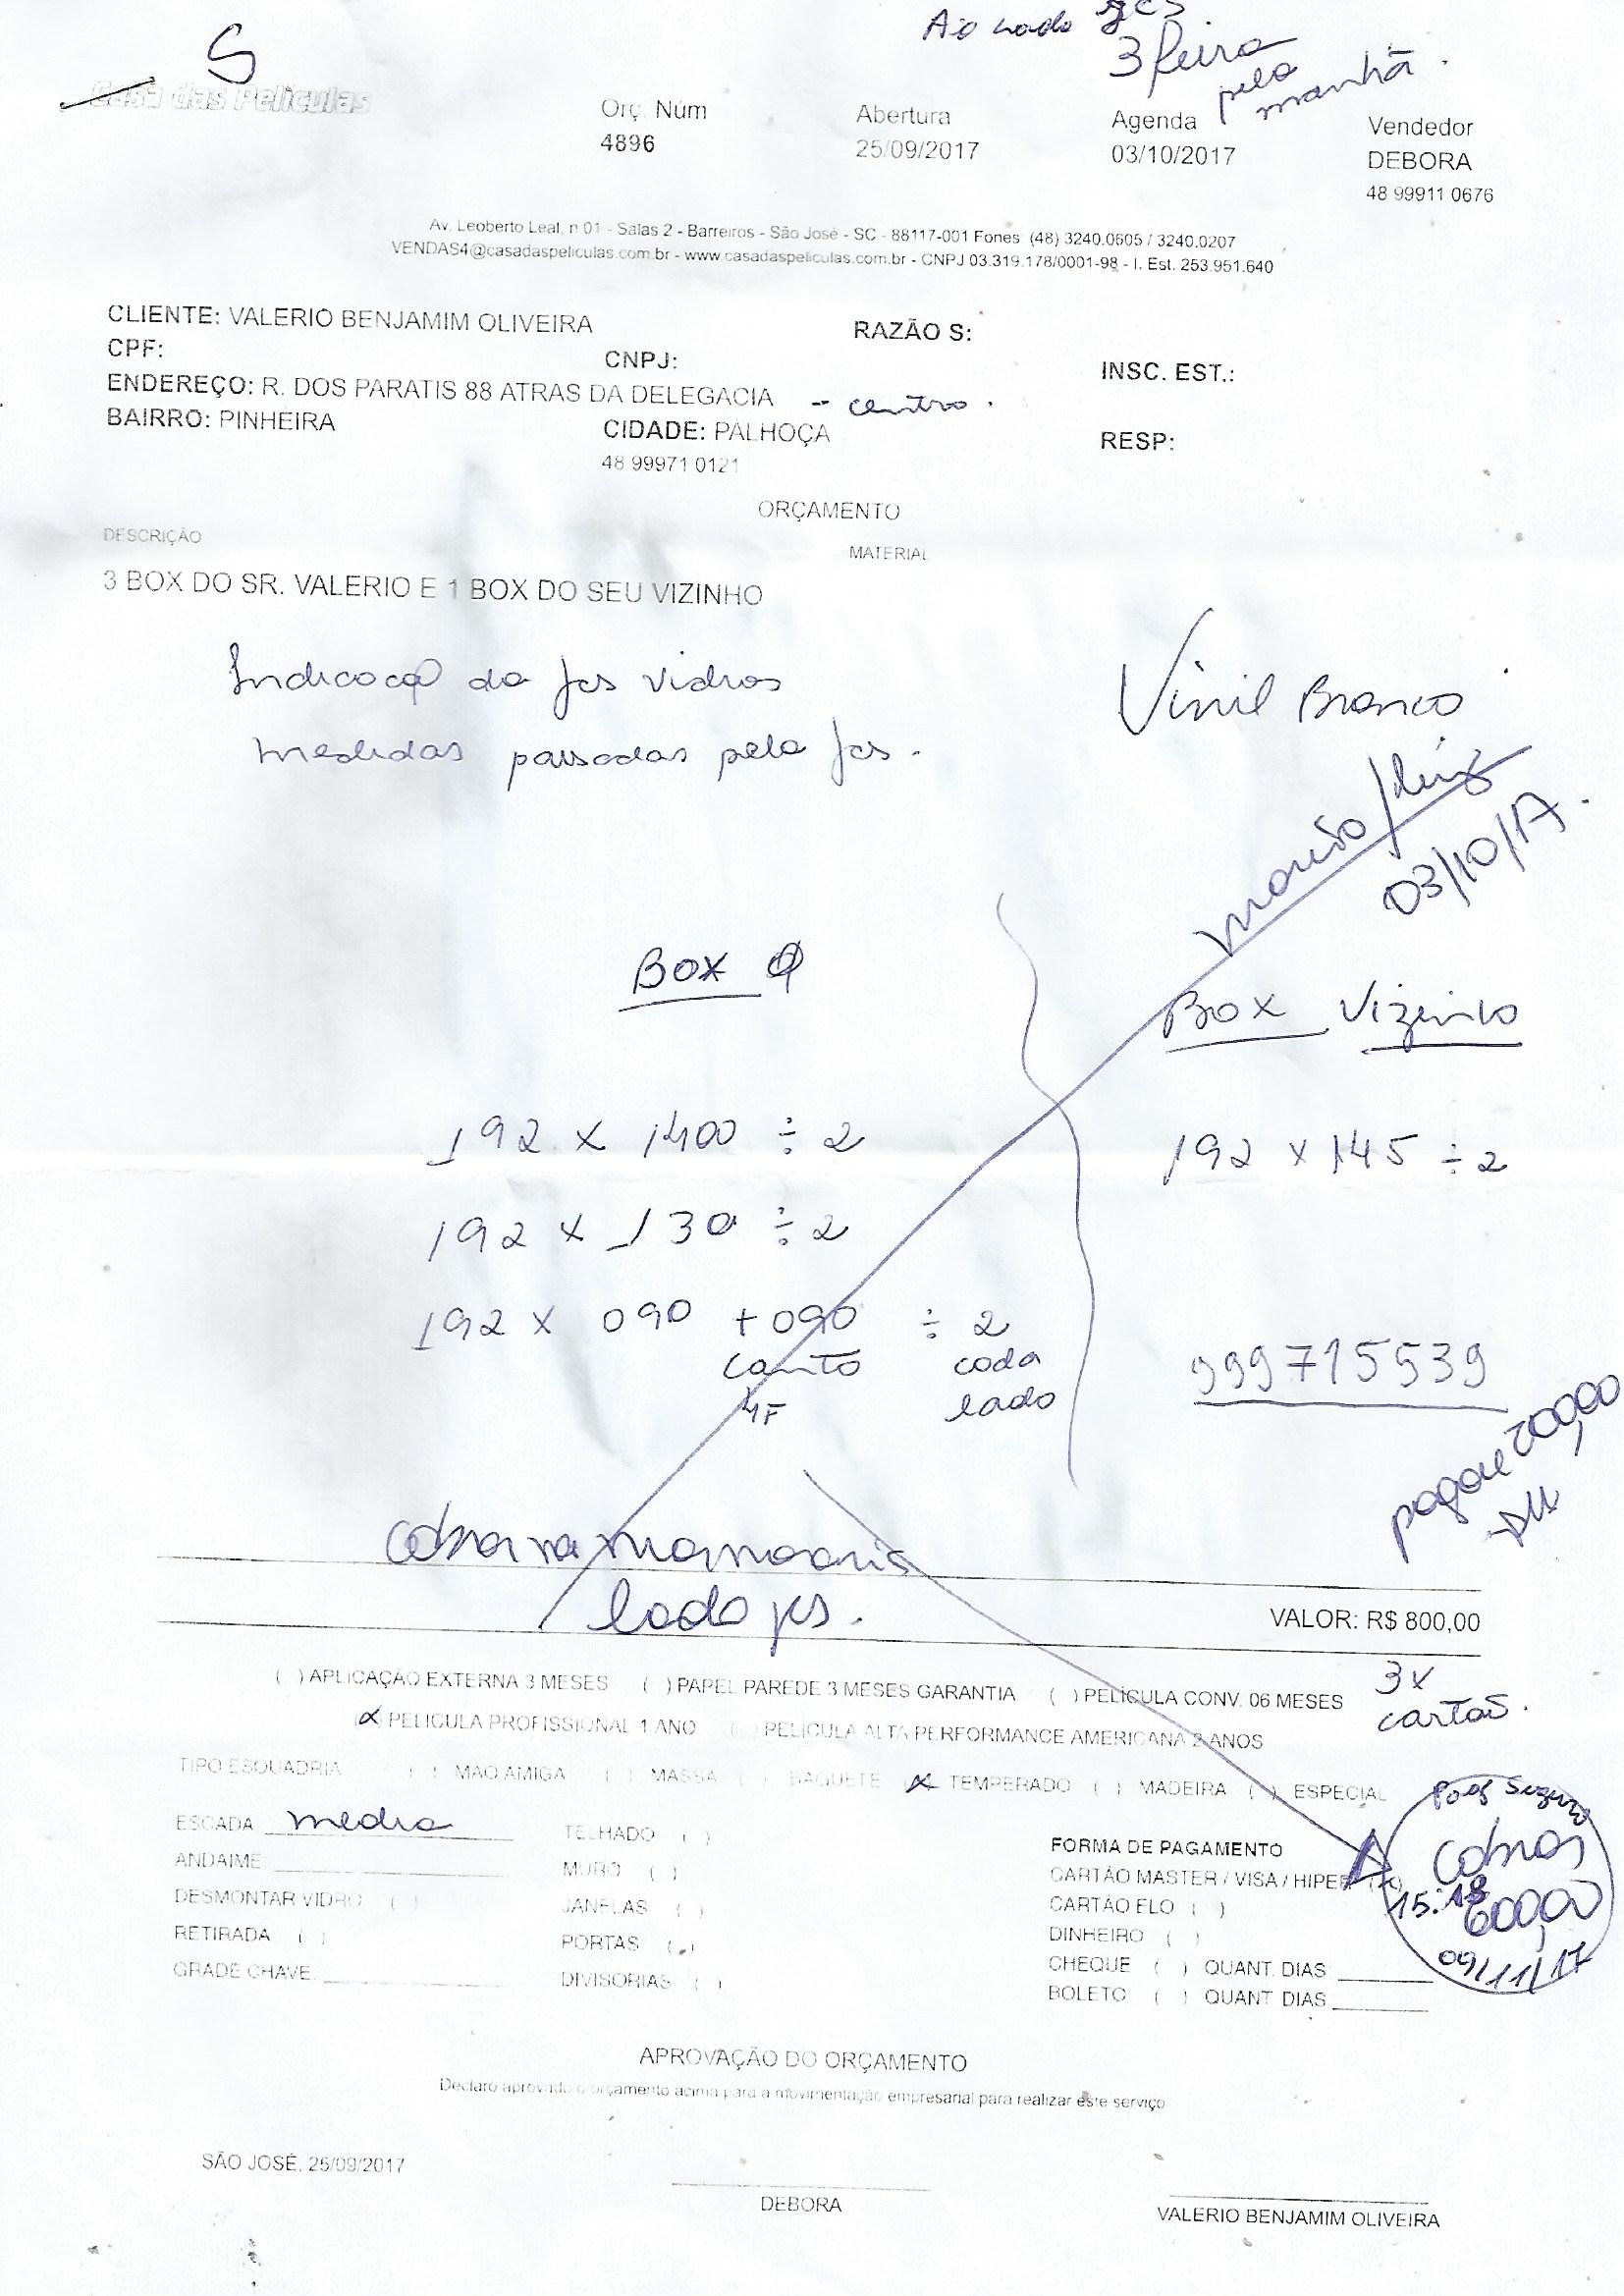 Ao lado jcs
3 feira
pela
manhã.
S
Casa das Peliculas
Orç. Núm
4896
Abertura
25/09/2017
Agenda
03/10/2017
Vendedor
DEBORA
48 99911 0676
Av. Leoberto Leal, n 01 - Salas 2 - Barreiros - São José - SC - 88117-001 Fones (48) 3240.0605 / 3240.0207
VENDAS4@casadaspeliculas.com.br - www.casadaspeliculas.com.br - CNPJ 03.319.178/0001-98 - I. Est. 253.951.640
CLIENTE: VALERIO BENJAMIM OLIVEIRA
RAZÃO S:
CPF:
CNPJ:
INSC. EST.:
ENDEREÇO: R. DOS PARATIS 88 ATRAS DA DELEGACIA - centro.
BAIRRO: PINHEIRA
CIDADE: PALHOÇA
RESP:
48 99971 0121
ORÇAMENTO
DESCRIÇÃO
MATERIAL
3 BOX DO SR. VALERIO E 1 BOX DO SEU VIZINHO
da jcs vidros
Vinil Branco
medidas passadas pela jcs.
03/10/17.
BOX
Box Vizinho
192 x 1400 ÷ 2
192 x 145 ÷ 2
192 x 130 ÷ 2
192 x 090 + 090 ÷ 2
canto cada
4F lado
999715539
700,00
lado jcs.
VALOR: R$ 800,00
3x
cartão.
( ) APLICAÇÃO EXTERNA 3 MESES ( ) PAPEL PAREDE 3 MESES GARANTIA ( ) PELÍCULA CONV. 06 MESES
(x) PELICULA PROFISSIONAL 1 ANO ( ) PELICULA ALTA PERFORMANCE AMERICANA 2 ANOS
TIPO ESQUADRIA ( ) MAO AMIGA ( ) MASSA ( ) BAGUETE (x) TEMPERADO ( ) MADEIRA ( ) ESPECIAL
ESCADA media
TELHADO ( )
ANDAIME
MURO ( )
DESMONTAR VIDRO ( )
JANELAS ( )
RETIRADA ( )
PORTAS ( )
GRADE CHAVE
DIVISORIAS ( )
FORMA DE PAGAMENTO
CARTÃO MASTER / VISA / HIPER (x)
CARTÃO ELO ( )
DINHEIRO ( )
CHEQUE ( ) QUANT. DIAS
BOLETO ( ) QUANT. DIAS
Pag Seguro
600,00
09/11/17
APROVAÇÃO DO ORÇAMENTO
Declaro aprovado o orçamento acima para a movimentação empresarial para realizar este serviço
SÃO JOSÉ, 25/09/2017
DEBORA
VALERIO BENJAMIM OLIVEIRA